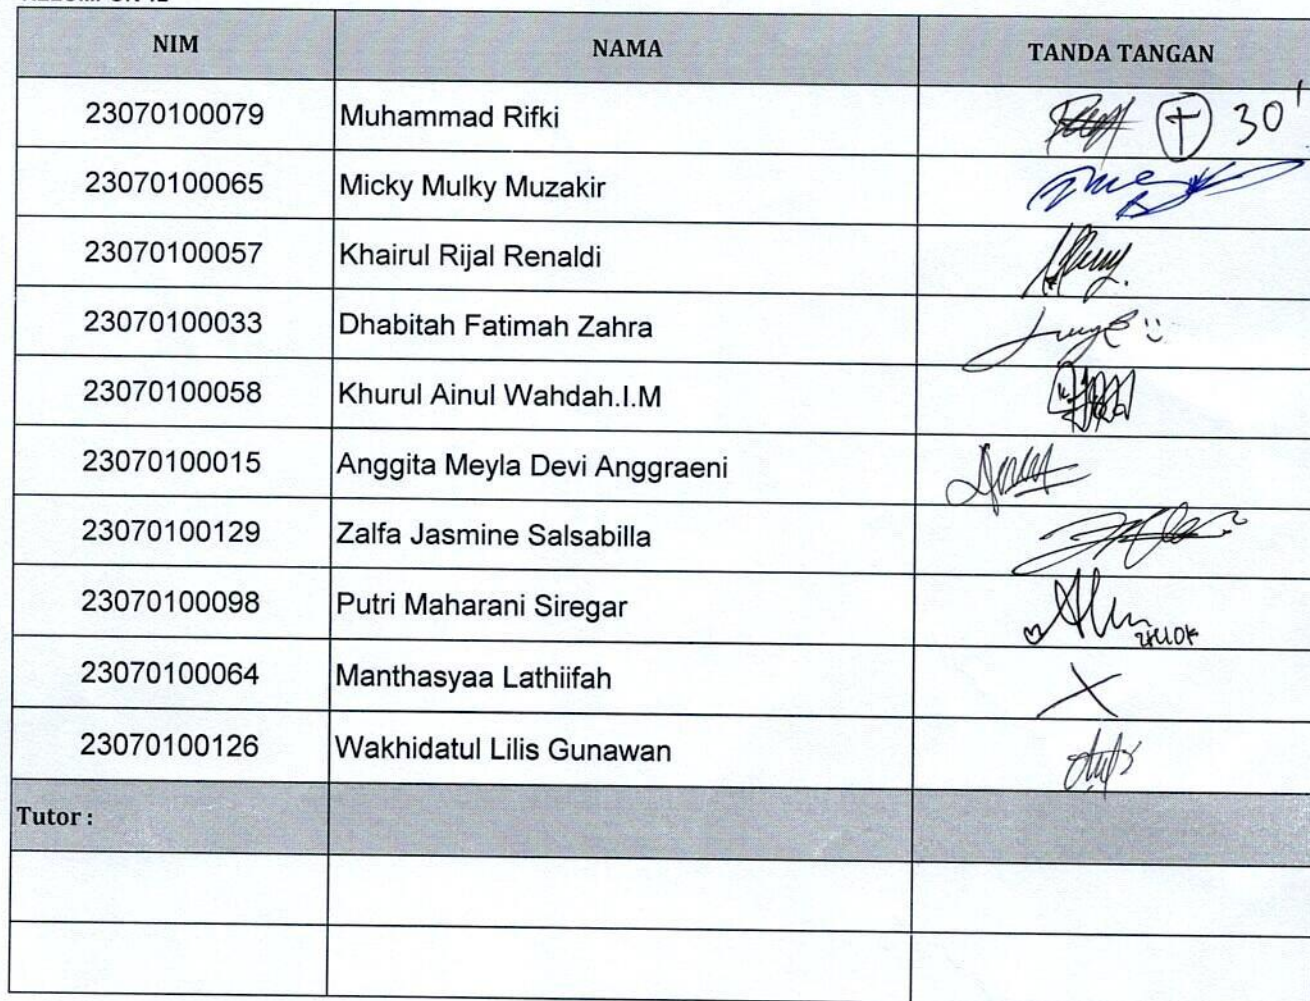 NIM NAMA TANDA TANGAN
23070100079 Muhammad Rifki + 30'
23070100065 Micky Mulky Muzakir
23070100057 Khairul Rijal Renaldi
23070100033 Dhabitah Fatimah Zahra
23070100058 Khurul Ainul Wahdah.I.M
23070100015 Anggita Meyla Devi Anggraeni
23070100129 Zalfa Jasmine Salsabilla
23070100098 Putri Maharani Siregar
23070100064 Manthasyaa Lathiifah X
23070100126 Wakhidatul Lilis Gunawan
Tutor :